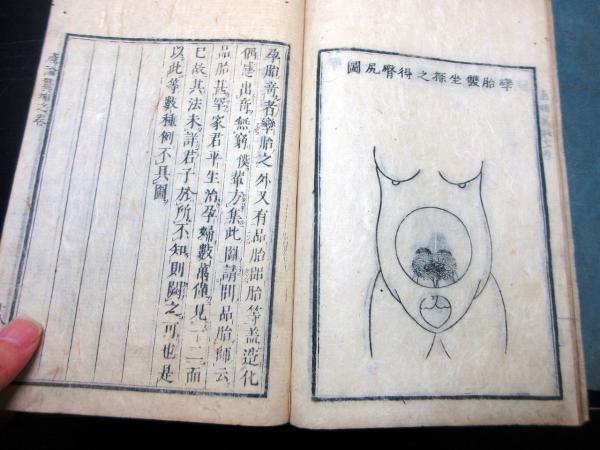 孿胎雙坐探之得臀尻圖
孕胎奇者孿胎之外又有品胎㗊胎等盖造化
偶感出奇無窮僕輩方集此圖請問品胎師云
品胎甚罕家君平生治孕婦數萬僅見一二而
已故其法未詳君子於所不知則闕之可也是
以此等數種例不具圖